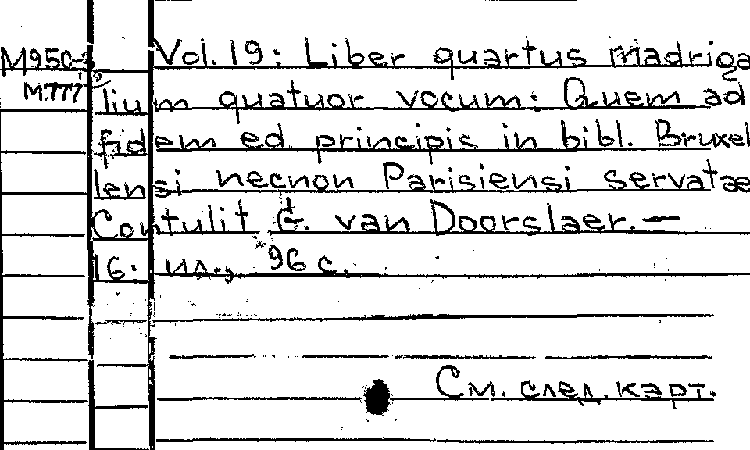 М950-3 Vol. 19: Liber quartus madriga
М.777 lium quatuor vocum: Quem ad
fidem ed. principis in bibl. Bruxel
lensi necnon Parisiensi servatae
Contulit G. van Doorslaer.—
16. ил., 96 с.
См. след. карт.